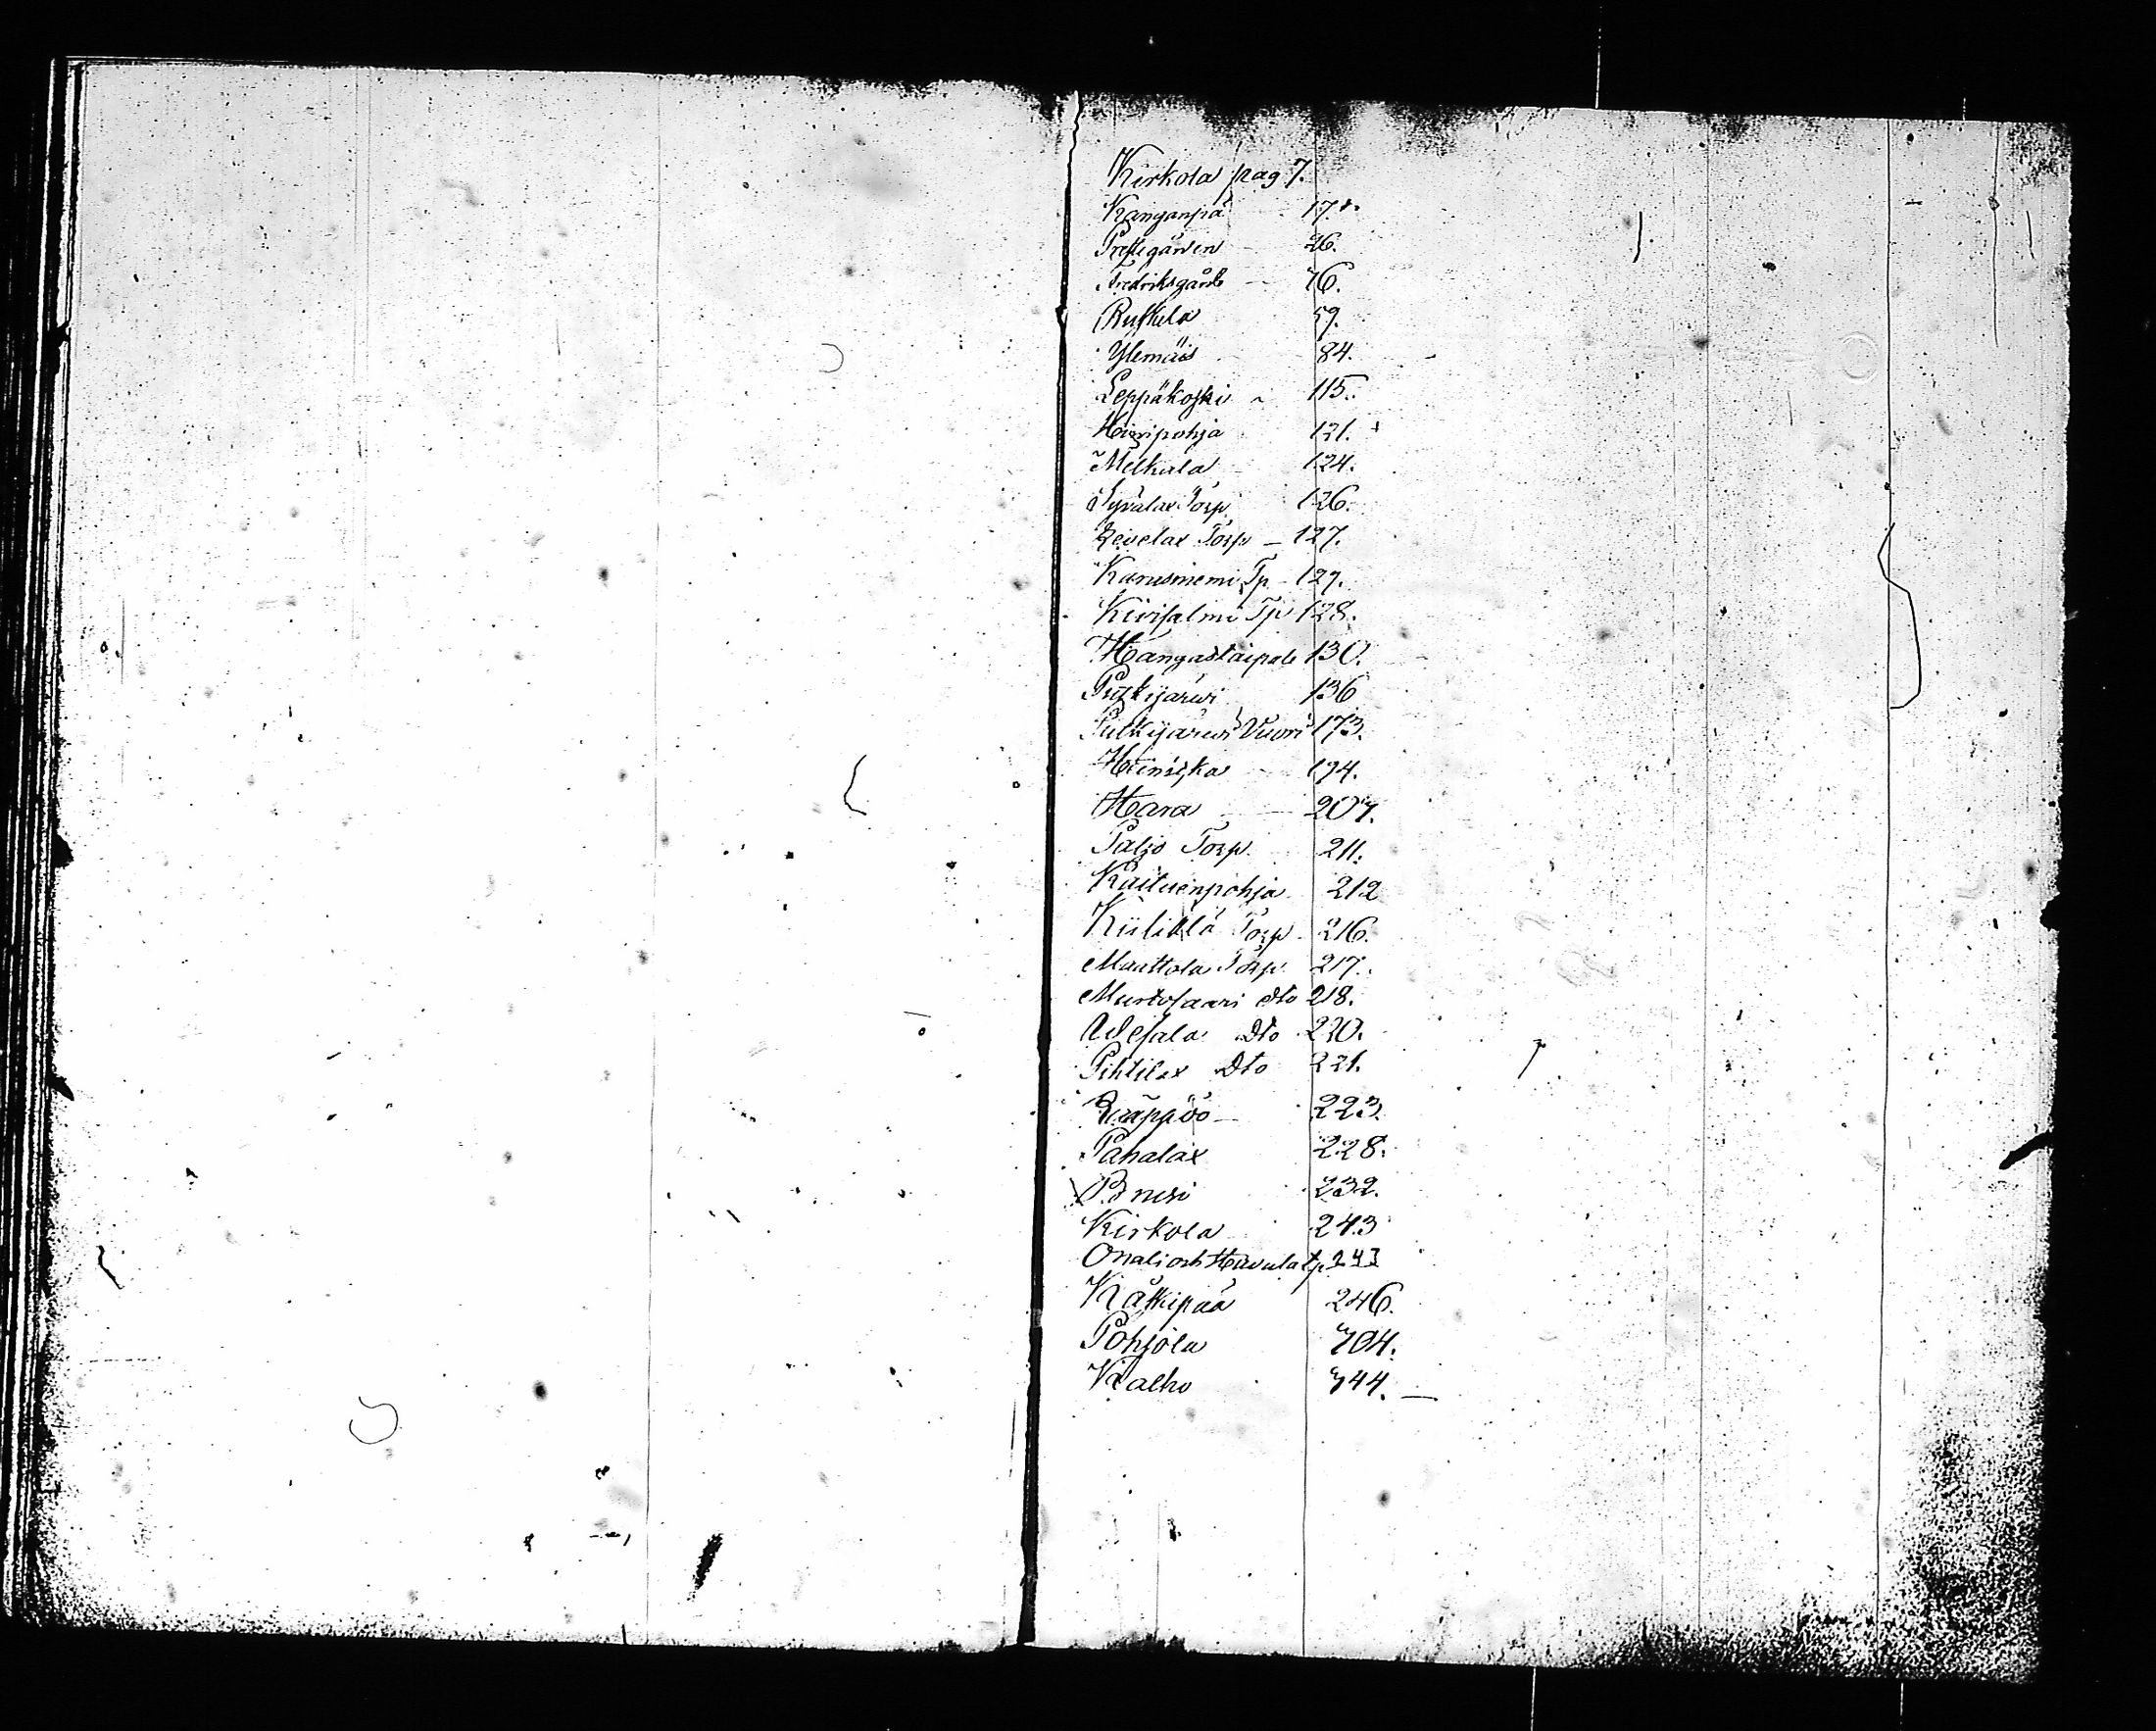 Kirkola pag 7.
Kanganpä 17.
Prestegården 26.
Fredriksgårde 76.
Ruskela 59.
Ylemäis 84.
Leppäkoski 115.
Hiiripohja 121.
Melkula 124.
Syrälax Torp 126.
Levelax Torp 127.
Karusniemi Tp 127.
Kivisalmi Tp 128.
Hangastaipale 130.
Pulkijärwi 136
Pulkijärwi Vuori 173.
194.
Hara 207.
Paljo Torp. 211.
Kaituenpohja 212
Torp 216.
Maattola Torp. 217.
Mustosaari dto 218.
Wesala Dto 220.
Pihtilax Dto 221.
223.
Pahalax 228.
232.
Kirkola 243
Onali och Havulatp 243
Kätkipää 246.
Pohjola 704.
Kalho 744.